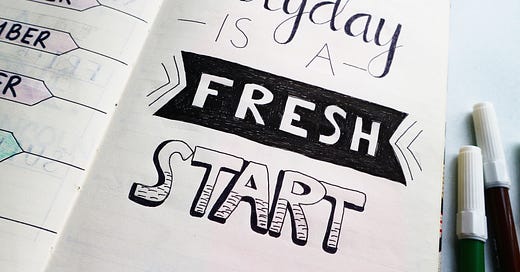 MBER
ER
ryday
– IS A –
FRESH
START